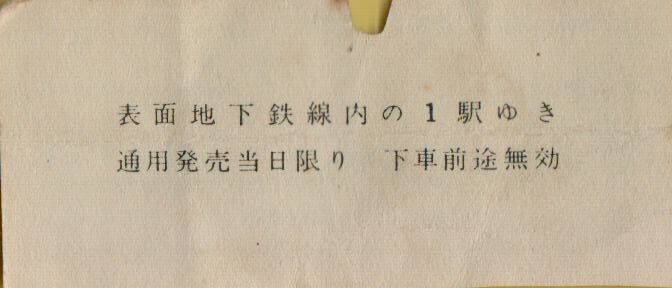 表面地下鉄線内の1駅ゆき
通用発売当日限り　下車前途無効